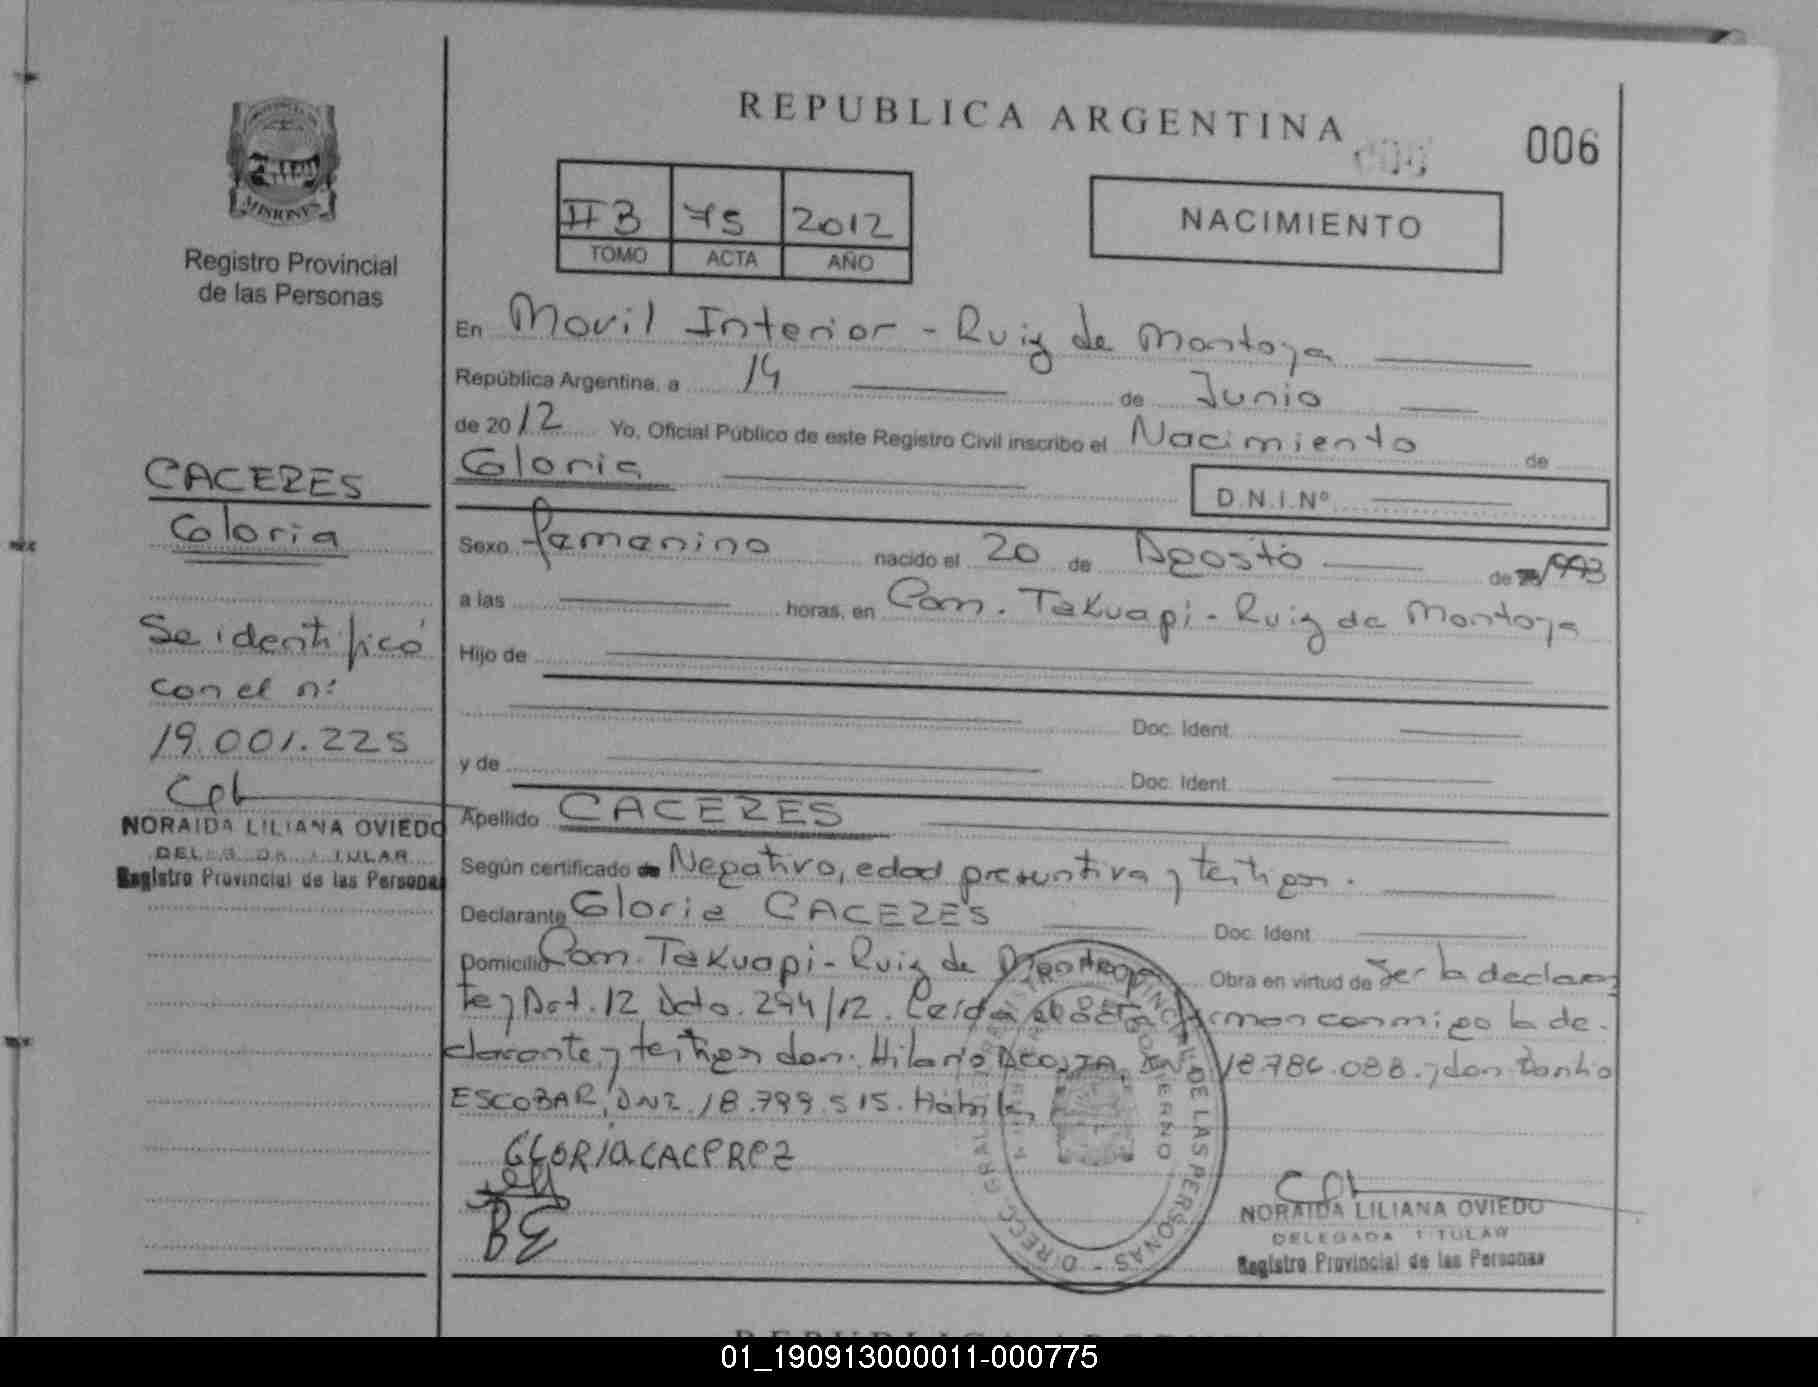 REPUBLICA ARGENTINA
006
MISIONES
Registro Provincial
de las Personas
II B 75 2012
TOMO ACTA AÑO
NACIMIENTO
En Movil Interior - Ruiz de Montoya
República Argentina, a 14 de Junio
de 2012 Yo, Oficial Público de este Registro Civil inscribo el Nacimiento de
Gloria D.N.I.Nº
Sexo femenino nacido el 20 de Agosto de 1993
a las horas, en Com. Takuapi - Ruiz de Montoya
Hijo de
Doc. Ident.
y de Doc. Ident.
Apellido CACERES
Según certificado de Negativo, edad presuntiva y testigos.
Declarante Gloria CACERES Doc. Ident.
Domicilio Com. Takuapi - Ruiz de Montoya Obra en virtud de ser la declaran
te y Art. 12 Dcto. 294/12. Leída el acta firman conmigo la de-
clarante y testigos don: Hilario ACOSTA, DNI 18.786.088. y don
ESCOBAR, DNI. 18.799.515. Hábiles
GLORIA CACEREZ
BE
NORAIDA LILIANA OVIEDO
DELEGADA TITULAR
Registro Provincial de las Personas
DIRECC. GRAL. DEL REGISTRO PROVINCIAL DE LAS PERSONAS
CACERES
Gloria
Se identificó
con el nº
19.001.225
NORAIDA LILIANA OVIEDO
DELEGADA TITULAR
Registro Provincial de las Personas
REPUBLICA ARGENTINA
01_190913000011-000775